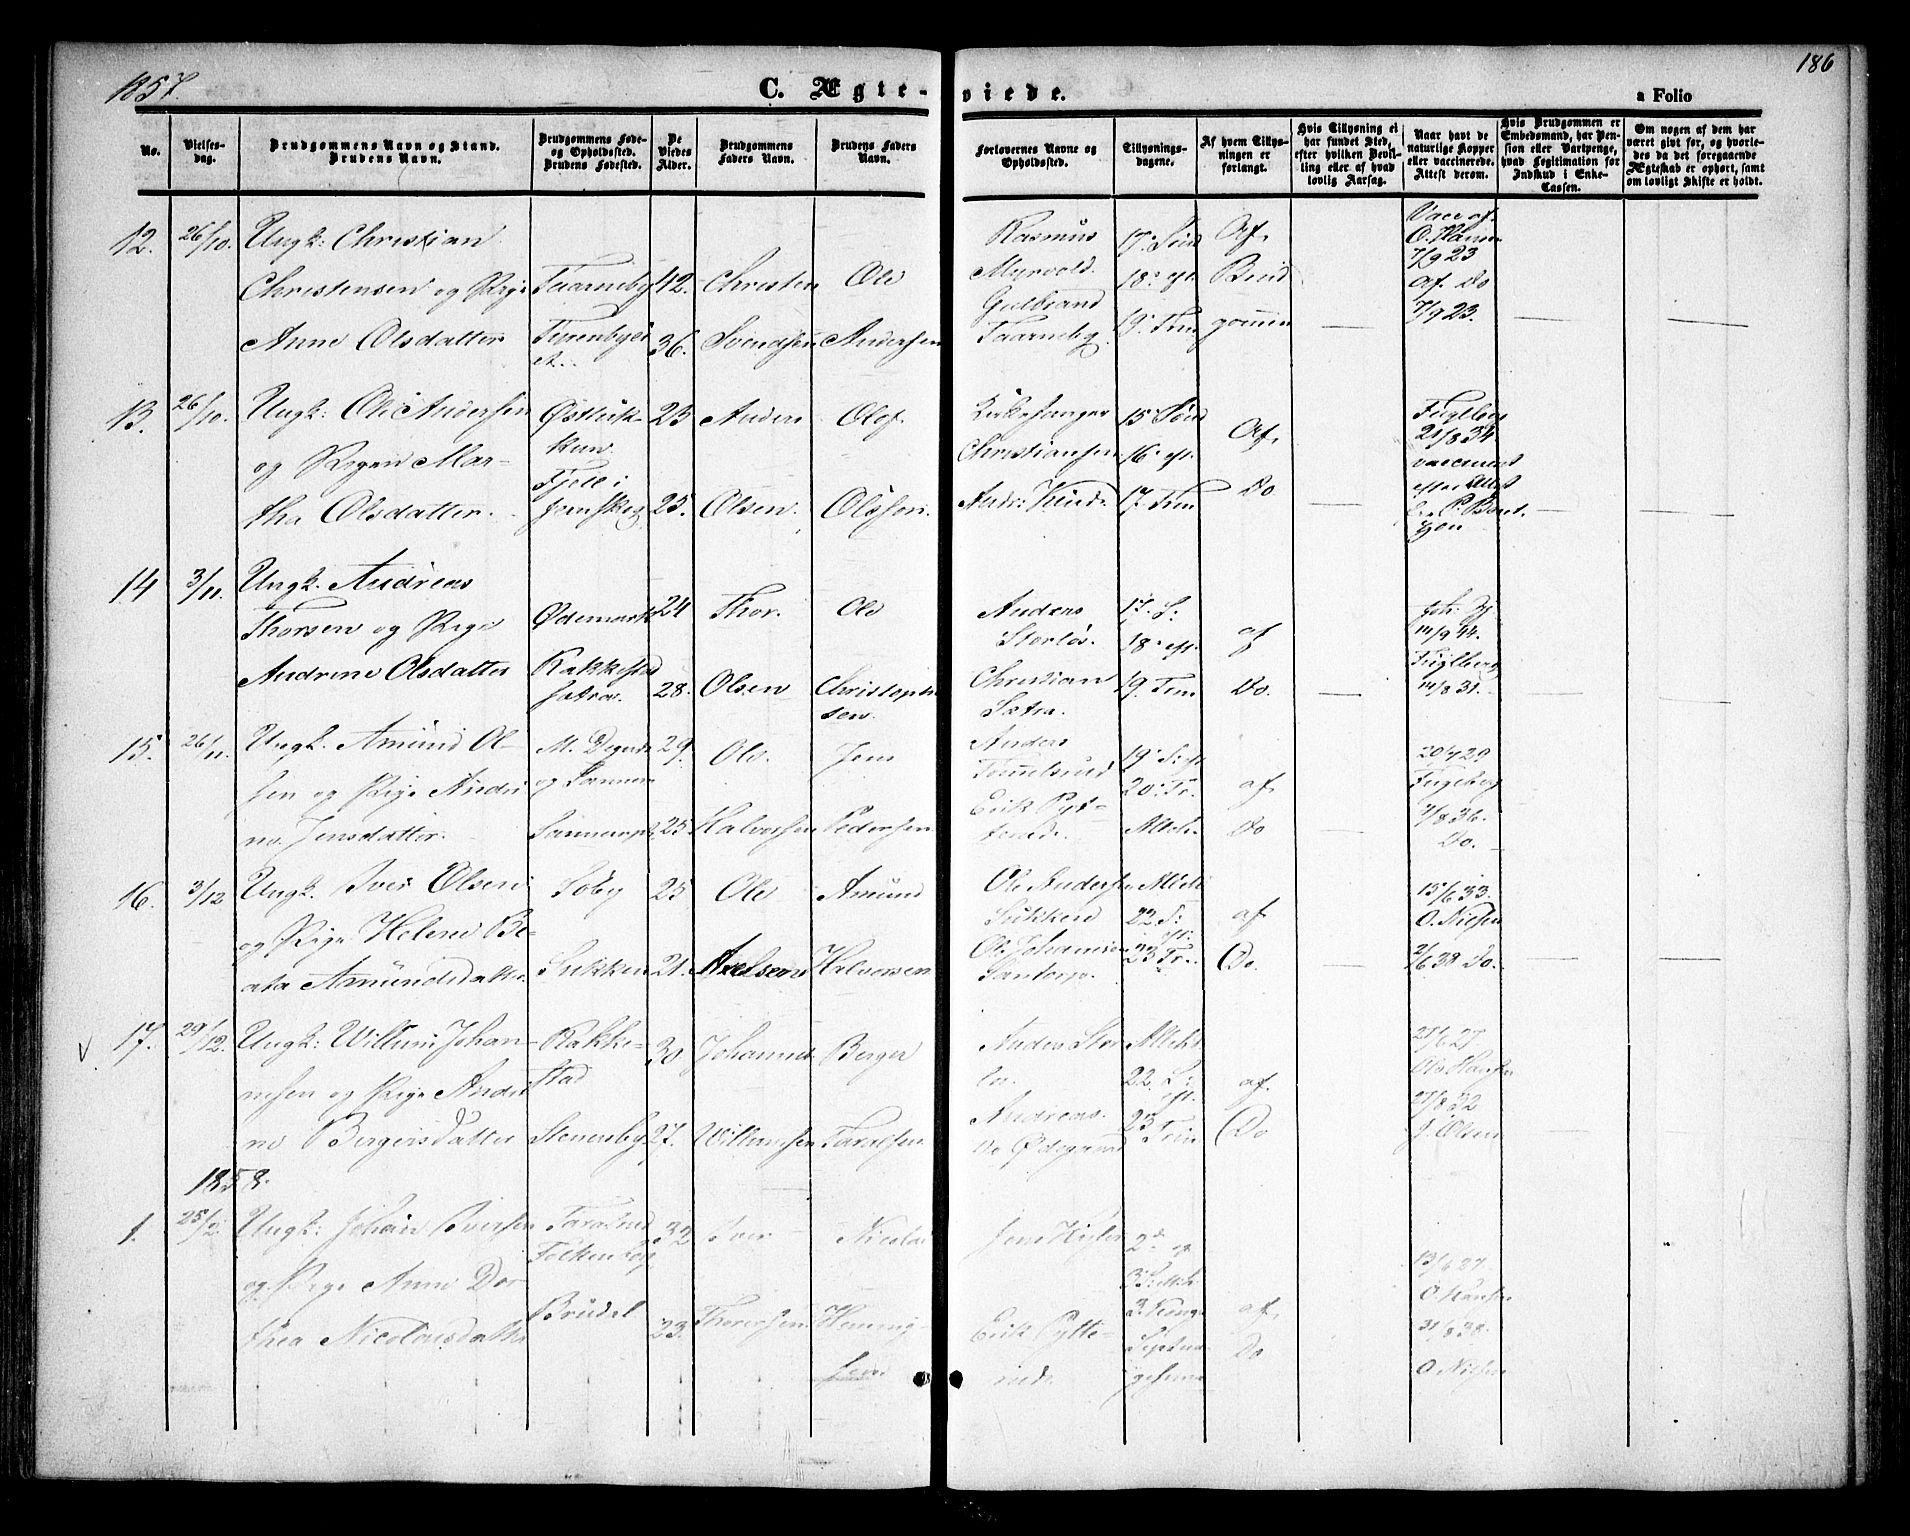 1857.
C. Ægte-viede.
186
a Folio
No.
Vielses-
dag.
Brudgommens Navn og Stand.
Brudens Navn.
Brudgommens Føde-
og Opholdssted.
Brudens Fødested.
De
Viedes
Alder.
Brudgommens
Faders Navn.
Brudens Faders
Navn.
Forlovernes Navne og
Opholdssted.
Tillysnings-
dagene.
Af hvem Tillys-
ningen er
forlangt.
Hvis Tillysning ei
har fundet Sted,
efter hvilken Bevil-
ling eller af hvad
lovlig Aarsag.
Naar havt de
naturlige Kopper
eller vaccinerede.
Attest derom.
Hvis Brudgommen er
Embedsmand, har Pen-
sion eller Vartpenge,
hvad Legitimation for
Indskud i Enke-
Cassen.
Om nogen af dem har
været givt før, og hvorle-
des da det foregaaende
Ægteskab er ophørt, samt
om lovligt Skifte er holdt.
12.
26/10.
Ungk: Christian
Christensen og Pige
Anne Olsdatter
Taarneby
42.
36.
Christen
Svendsen
Ole
Andersen
Rasmus
Myrvold.
Gulbrand
Taarneby
17. Sønd
18. ef.
19. Trin
Af
Brud
gommen
Vacc af
O. Hansen
7/9 23
af Do
7/9 23.
13.
26/10.
Ungk: Ole Andersen
og Pigen Mar-
tha Olsdatter.
23
25.
Anders
Olsen
Olof
Olsson.
Kirkesanger
Christiansen
15 Sønd
16. ef.
17. Trin
Af
Do
Fuglberg
21/8 34
14
3/11.
Ungk. Andreas
Thorsen og Pige
Andrine Olsdatter
Ødemark
Rakkestad
Sætra.
24
28.
Thor.
Olsen
Ole
Christophe
sen.
Anders
Storløs.
Christian
Sætra.
17. S.
18. ef.
19. Trin
af
Do.
14/9 44.
Fuglberg
14/8 31.
15.
26/11.
Ungk. Amund Ol-
sen og Pige Andri
ne Jensdatter.
29.
25.
Ole
Halvorsen
Jens
Pedersen
Anders
Tommelsrud
Erik Pyt-
19. S. ef
20. Tr.
af
Do
20/4 29
Fugleberg
7/8 36.
Do.
16.
3/12
Ungk. Iver Olsen
og Pige Helene Be-
ata Amundsdatte
Søby
Sukken
25
21.
Ole
Axelsen
Amund
Halvorsen
Ole Andersen
Sukken
Ole Johannsen
22 S.
ef.
23 Tr.
af
Do.
15/6 33.
O. Nielsen
2/6 38 Do.
17.
29/12.
Ungk: Willum Johan-
nesen og Pige Andri
ne Bergersdatter
Rakke-
stad
Stenersby
30
27.
Johannes
Willumsen
Berger
Taralsen
Anders Stor
løs.
Andreas
22. S:
ef.
23 Trin
af.
Do
27/6 27
Ols Hansen
27/8 32
J. Olsen
1858.
1.
25/2.
Ungk: Johan Iversen
og Pige Anne Dor
thea Nicolaisdatte
Folkenborg
Brudal
32
23.
Iver
Thoresen
Nicolai
Henning-
sen
Erik Pytte-
rud.
af
Do
13/6 27.
O. Hansen
31/8 38.
O. Nielsen